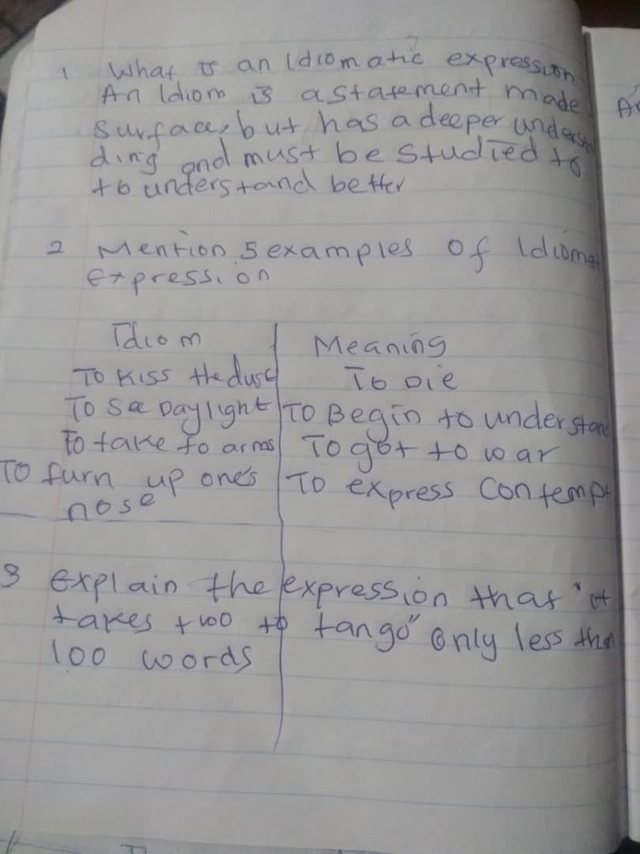 1 What is an Idiomatic expression
An Idiom is a statement made
surface, but has a deeper understan
ding and must be studied to
to understand better
2 Mention 5 examples of Idioma
Expression
Idiom Meaning
To Kiss the dust To Die
To See Daylight To Begin to understand
To take to arms To got to war
To turn up one's To express Contempt
nose
3 Explain the expression that "it
takes two to tango" only less than
100 words